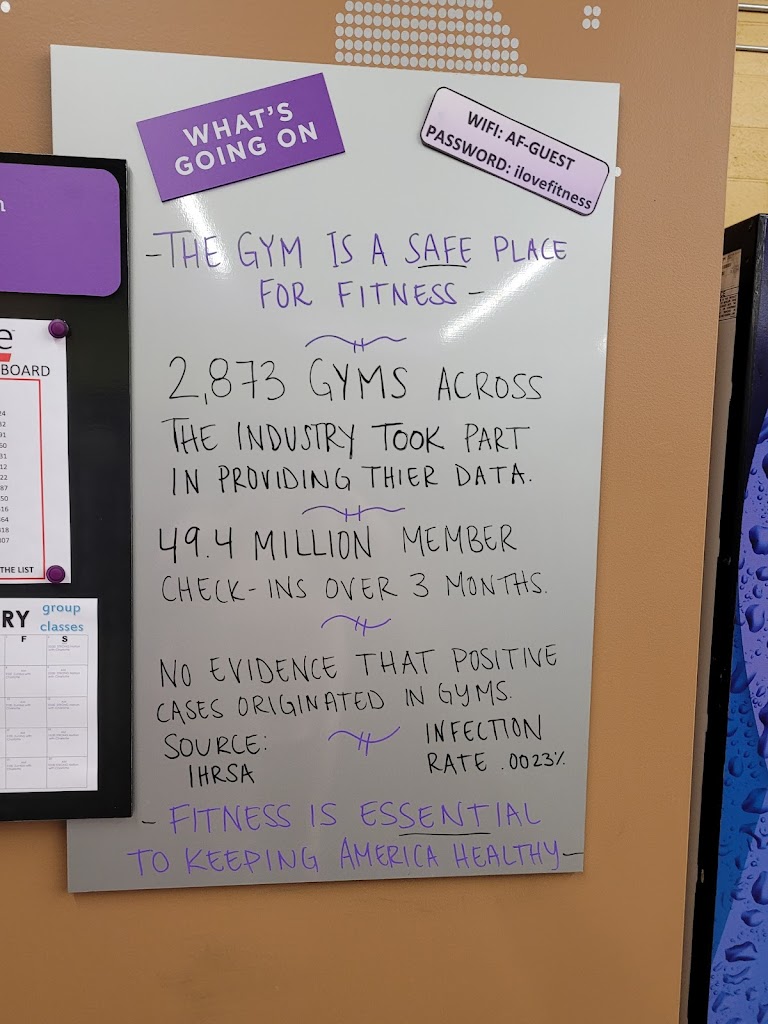 WHAT'S
GOING ON
WIFI: AF-GUEST
PASSWORD: ilovefitness
-THE GYM IS A SAFE PLACE
FOR FITNESS-
2,873 GYMS ACROSS
THE INDUSTRY TOOK PART
IN PROVIDING THIER DATA.
49.4 MILLION MEMBER
CHECK-INS OVER 3 MONTHS.
NO EVIDENCE THAT POSITIVE
CASES ORIGINATED IN GYMS.
SOURCE:
IHRSA
INFECTION
RATE .0023%
- FITNESS IS ESSENTIAL
TO KEEPING AMERICA HEALTHY-
BOARD
THE LIST
RY group
classes
F S